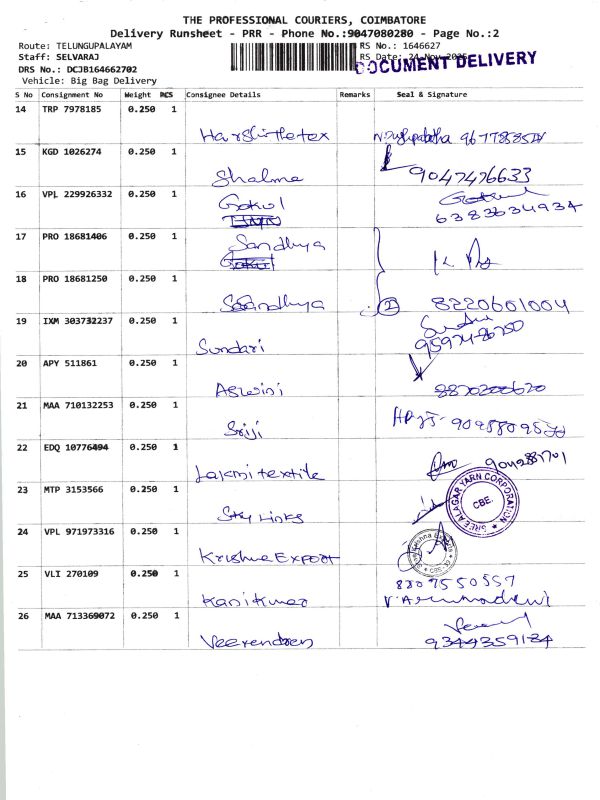 THE PROFESSIONAL COURIERS, COIMBATORE
Delivery Runsheet - PRR - Phone No.:9047080280 - Page No.:2
Route: TELUNGUPALAYAM
RS No.: 1646627
Staff: SELVARAJ
RS Date: 24 Nov
DOCUMENT DELIVERY
DRS No.: DCJB164662702
Vehicle: Big Bag Delivery
S No Consignment No Weight PCS Consignee Details Remarks Seal & Signature
14 TRP 7978185 0.250 1
15 KGD 1026274 0.250 1
Shalma 9047476633
16 VPL 229926332 0.250 1
Gokul
6383634934
17 PRO 18681406 0.250 1
Sandhya
18 PRO 18681250 0.250 1
Sandhya 2 8220601004
19 IXM 303732237 0.250 1
Sundari
20 APY 511861 0.250 1
Aswini
21 MAA 710132253 0.250 1
Sriji
22 EDQ 10776494 0.250 1
Laxmi textile
23 MTP 3153566 0.250 1
Sky Links
SREE ALAGAR YARN CORPORATION
CBE.
24 VPL 971973316 0.250 1
Krishna Export
25 VLI 270109 0.250 1
Kanikumar
26 MAA 713369072 0.250 1
Veerendren 9344359184